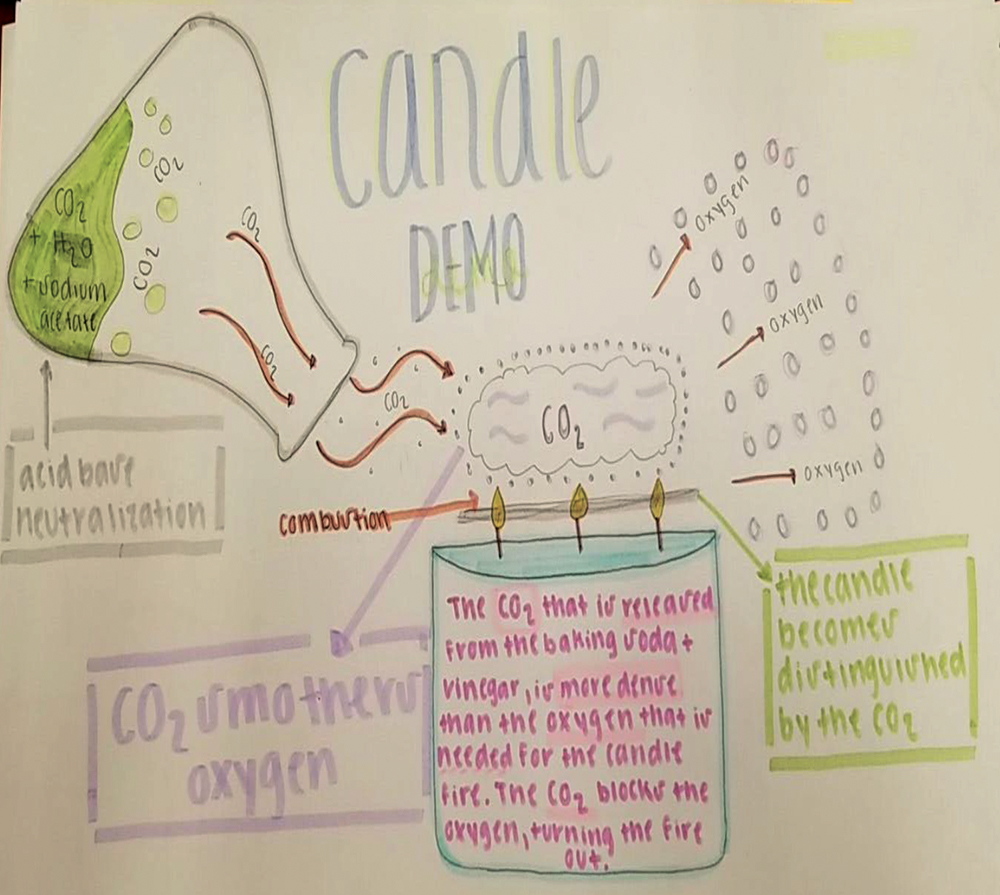 Candle
DEMO
CO2
+ H2O
+ sodium
acetate
CO2
CO2
CO2
CO2
CO2
CO2
oxygen
oxygen
oxygen
acid base
neutralization
combustion
CO2 smothers
oxygen
The CO2 that is released
from the baking soda +
vinegar, is more dense
than the oxygen that is
needed for the candle
fire. The CO2 blocks the
oxygen, turning the fire
out.
the candle
becomes
distinguished
by the CO2